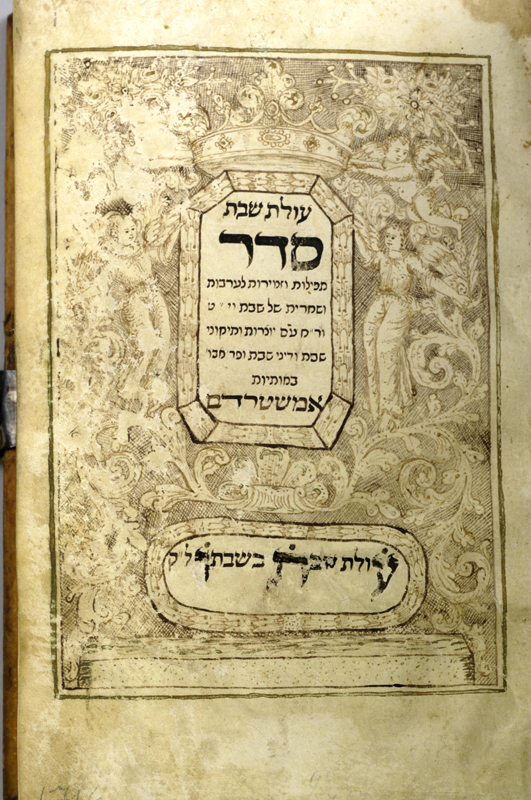 עולת שבת
סדר
תפילות וזמירות לערבות
ושחרית של שבת וי״ט
ור״ח עם יוצרות ותיקוני
שבת ודיני שבת ופר
במותיות
אמשטרדם
עולת שבת בשבתו לפ״ק